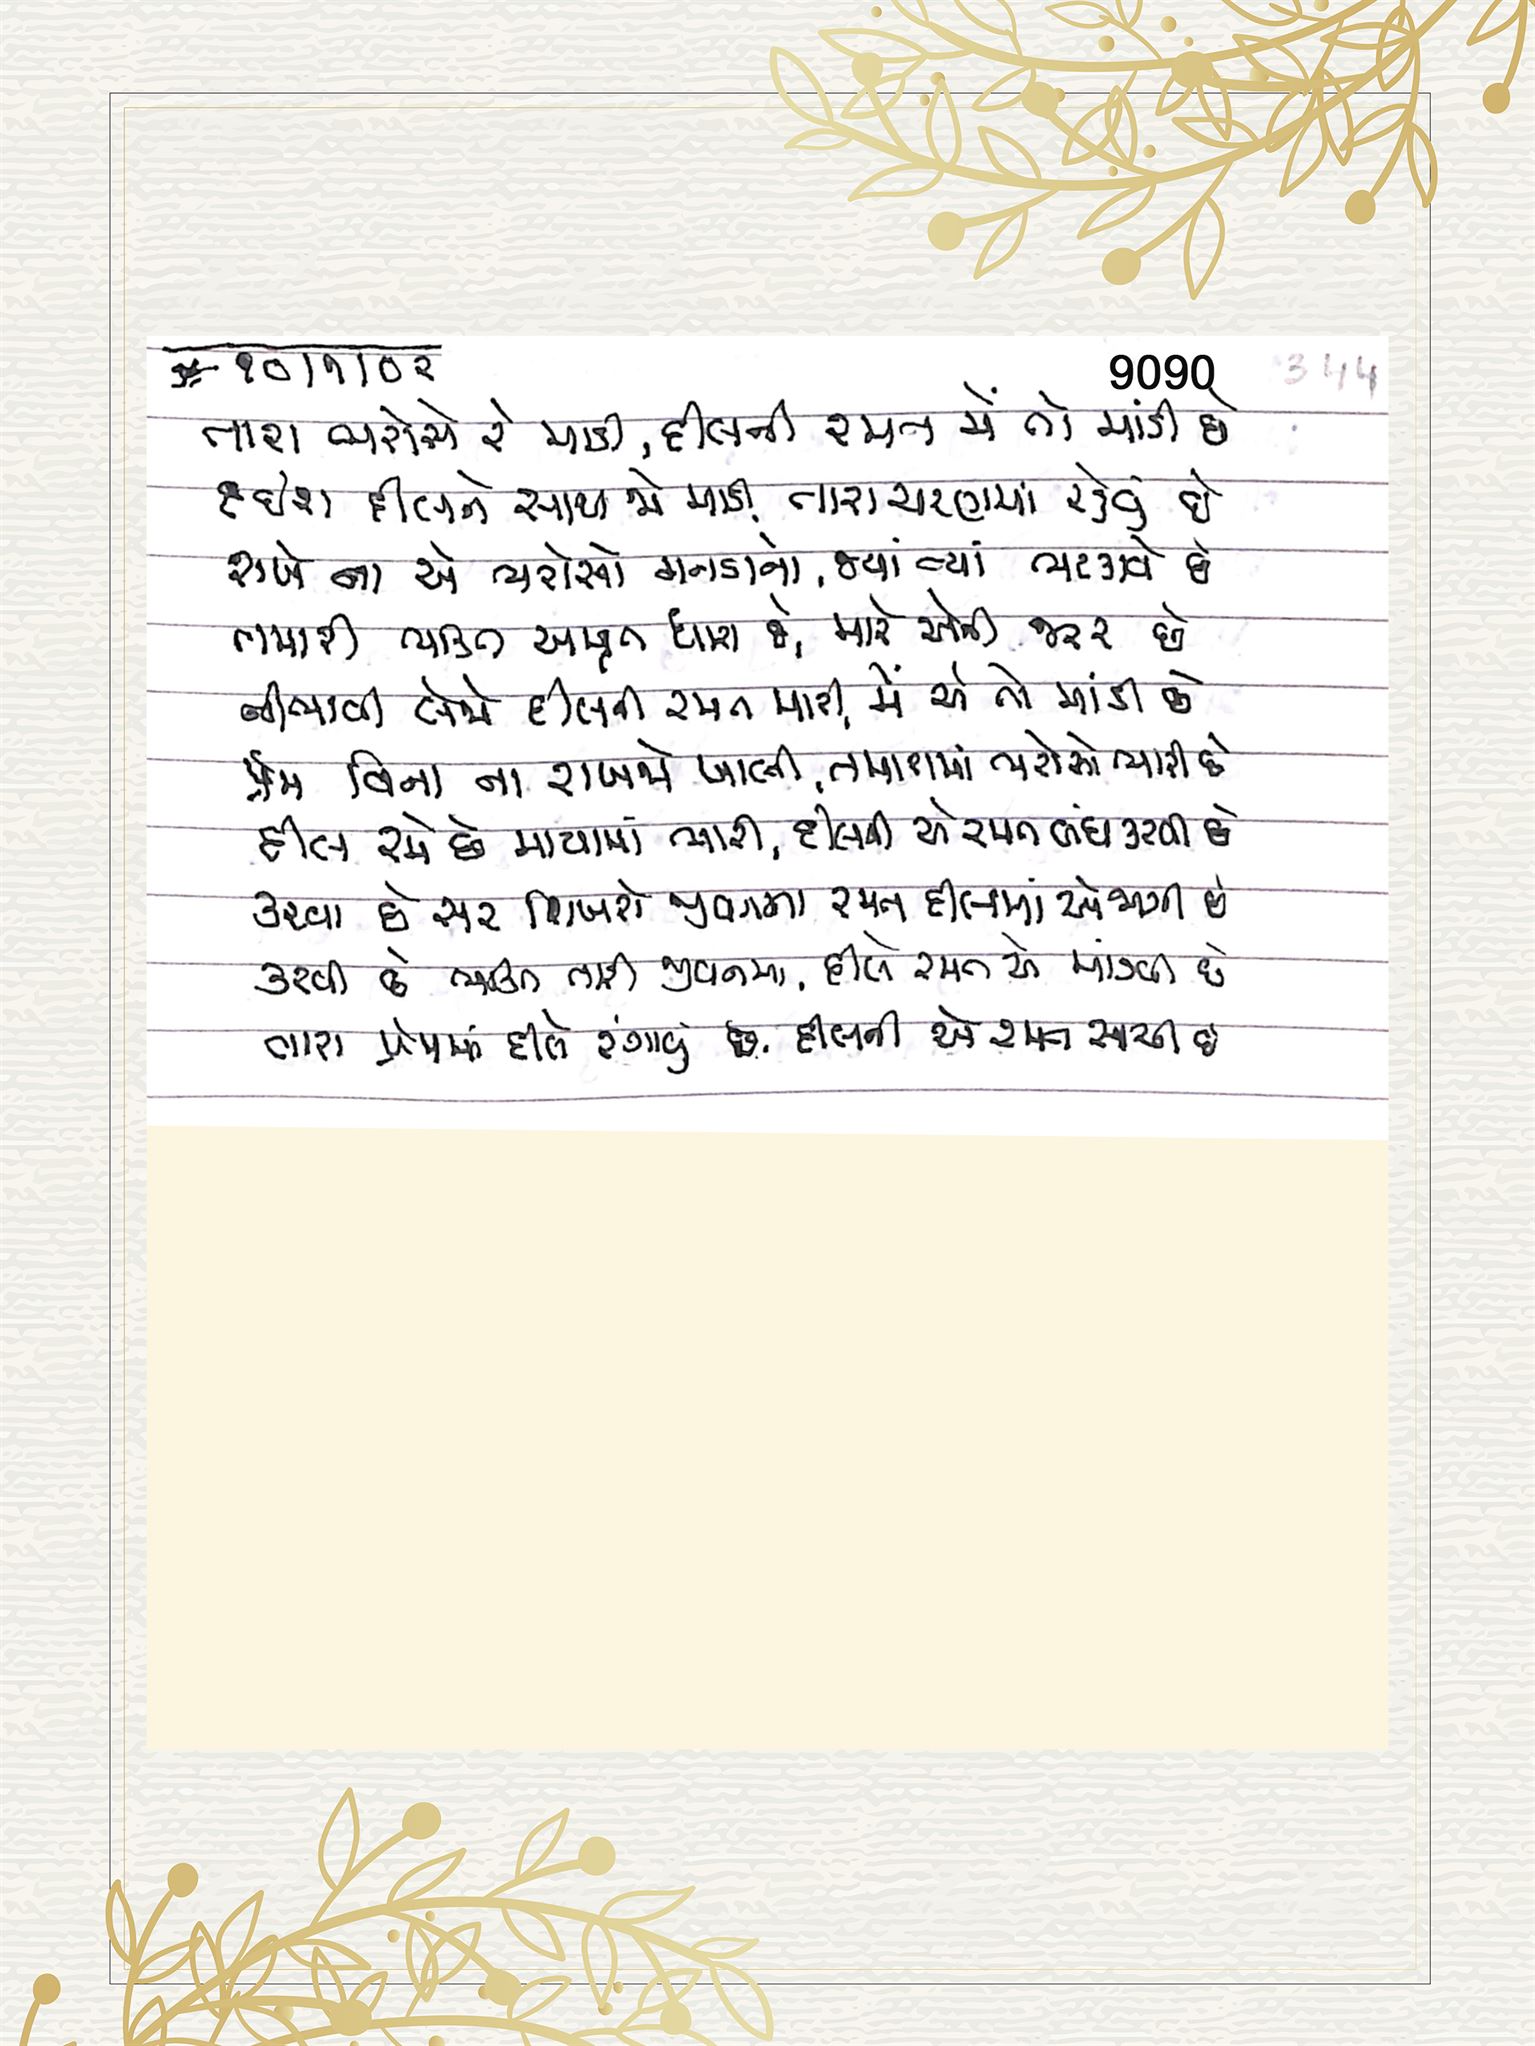 ૧૦/૧/૦૨
9090
૩૫૫
તારા ભરોસે રે માડી, દીલની રમત મેં તો માંડી છે
દઈશ દીલને સાથ જો માડી, તારા ચરણમાં રહેવું છે
રાખે ના એ ભરોસો મનડાનો, જ્યાં ત્યાં ભટકાવે છે
તમારી ભક્તિ અમૃત ધારા છે, મારે એની જરૂર છે
નીભાવી લેજો દીલની રમત મારી, મેં એ તો માંડી છે
પ્રેમ વિના ના રાખજો ખાલી, તમારામાં ભરોસો ભારી છે
દીલ રમે છે માયામાં ભારી, દીલની એ રમત બંધ કરવી છે
કરવા છે સર શિખરો જીવનમા રમત દીલમાં એ જાગી છે
કરવી છે ભક્તિ તારી જીવનમા, દીલે રમત એ માંડવી છે
તારા પ્રેમમાં દીલે રંગાવું છે. દીલની એ રમત સાચી છે